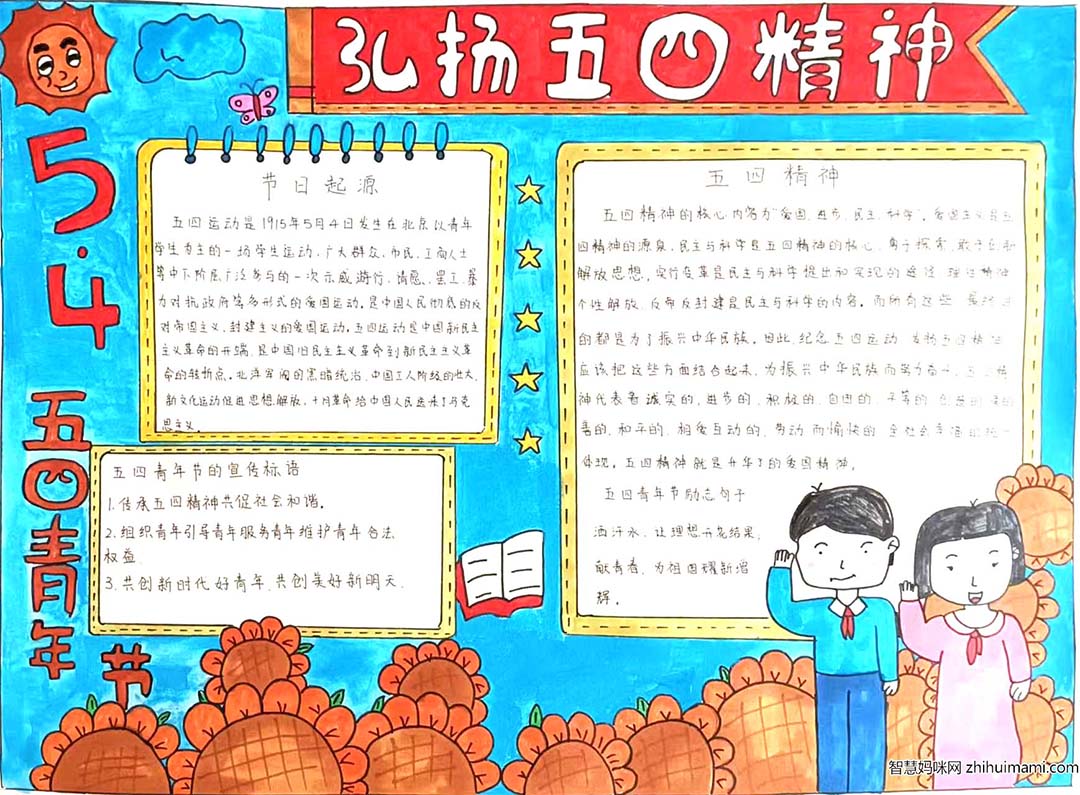 弘扬五四精神
5.4
五四青年节
节日起源
五四运动是1915年5月4日发生在北京以青年
学生为主的一场学生运动，广大群众、市民、工商人士
等中下阶层广泛参与的一次示威游行、请愿、罢工、暴
力对抗政府等多形式的爱国运动，是中国人民彻底的反
对帝国主义、封建主义的爱国运动。五四运动是中国新民主
主义革命的开端，是中国旧民主主义革命到新民主主义革
命的转折点。北洋军阀的黑暗统治、中国工人阶级的壮大、
新文化运动促进思想解放、十月革命给中国人民送来了马克
思主义。
五四青年节的宣传标语
1.传承五四精神共促社会和谐。
2.组织青年引导青年服务青年维护青年合法
权益
3.共创新时代好青年,共创美好新明天.
五四精神
五四精神的核心内容为“爱国、进步、民主、科学”，爱国主义是五
四精神的源泉，民主与科学是五四精神的核心，勇于探索、敢于创新
解放思想，实行变革是民主与科学提出和实现的途径，理性精神
个性解放、反帝反封建是民主与科学的内容。而所有这些，最终
的都是为了振兴中华民族。因此，纪念五四运动、发扬五四精神
应该把这些方面结合起来，为振兴中华民族而努力奋斗。五四精
神代表着诚实的、进步的、积极的、自由的、平等的、创造的
善的、和平的、相爱互动的、劳动而愉快的、全社会幸福的
体现。五四精神就是升华了的爱国精神。
五四青年节励志句子
洒汗水，让理想开花结果，
献青春，为祖国耀新增
辉。
智慧妈咪网 zhihuimami.com